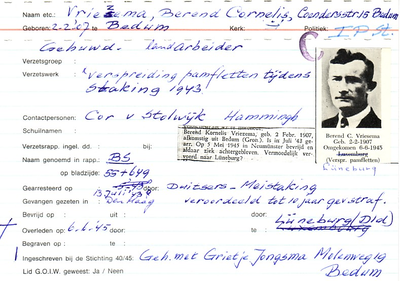 Naam etc.: Vriezema, Berend Cornelis, Coendersstr 15 Bedum
Geboren: 2-2-'07 te Bedum Kerk: Politiek: I.P.St.
Gehuwd. landarbeider
Verzetsgroep :
Verzetswerk : Verspreiding pamfletten tijdens
Staking 1943
Contactpersonen: Cor v Stolwijk Hammingh
Schuilnamen :
Verzetsrapp. ingel. dd. : bij:
Naam genoemd in rapp.: BS
op bladzijde: 55+649
Berend Kornelis Vriezema, geb. 2 Febr. 1907,
afkomstig uit Bedum (Gron.). Is in Juli '42 ge-
arr. Op 5 Mei 1945 in Neumünster bevrijd en
aldaar ziek achtergebleven. Vermoedelijk ver-
voerd naar Lüneburg?
Berend C. Vriesema
Geb. 2-2-1907
Omgekomen 6-6-1945
Luxemburg
(Verspr. pamfletten)
Lüneburg
Gearresteerd op : 5-'43 door: Duitsers - Meistaking
13 Juli '43
Gevangen gezeten in: Den Haag veroordeeld tot 10 jaar gev. straf.
Bevrijd op : uit : door: Lüneburg (Dld)
Overleden op : 6-6-'45 te : door: Luxemburg
Begraven op : te :
Ingeschreven bij de Stichting 40/45: Geh. met Grietje Jongsma Molenweg 19
Lid G.O.I.W. geweest: Ja / Neen Bedum